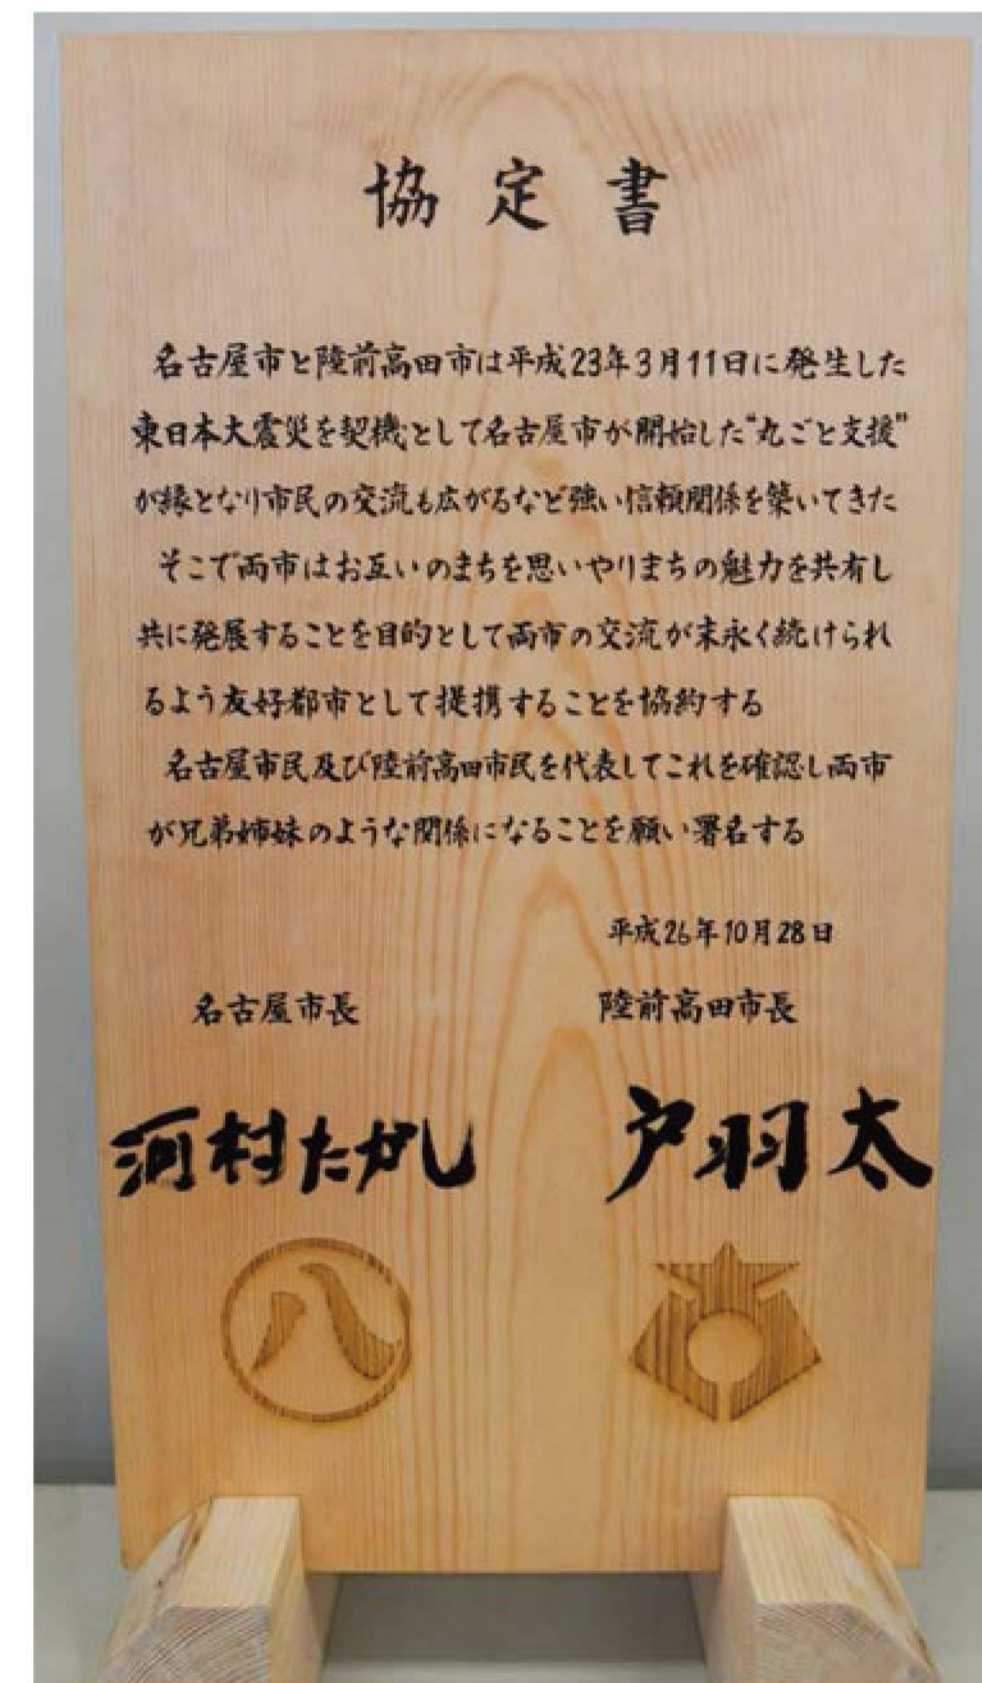 協定書
名古屋市と陸前高田市は平成23年3月11日に発生した
東日本大震災を契機として名古屋市が開始した“丸ごと支援”
が縁となり市民の交流も広がるなど強い信頼関係を築いてきた
そこで両市はお互いのまちを思いやりまちの魅力を共有し
共に発展することを目的として両市の交流が末永く続けられ
るよう友好都市として提携することを協約する
名古屋市民及び陸前高田市民を代表してこれを確認し両市
が兄弟姉妹のような関係になることを願い署名する
平成26年10月28日
名古屋市長 陸前高田市長
河村たかし 戸羽太
八